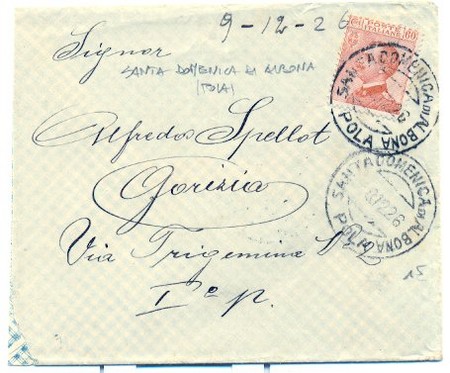 9-12-26
Signor
SANTA DOMENICA DI ALBONA
(POLA)
POSTE ITALIANE 60
SANTA DOMENICA DI ALBONA
POLA
Alfredo Spellot
Gorizia
SANTA DOMENICA DI ALBONA
9.12.26
POLA
Via Trigemina
Iº p.
15